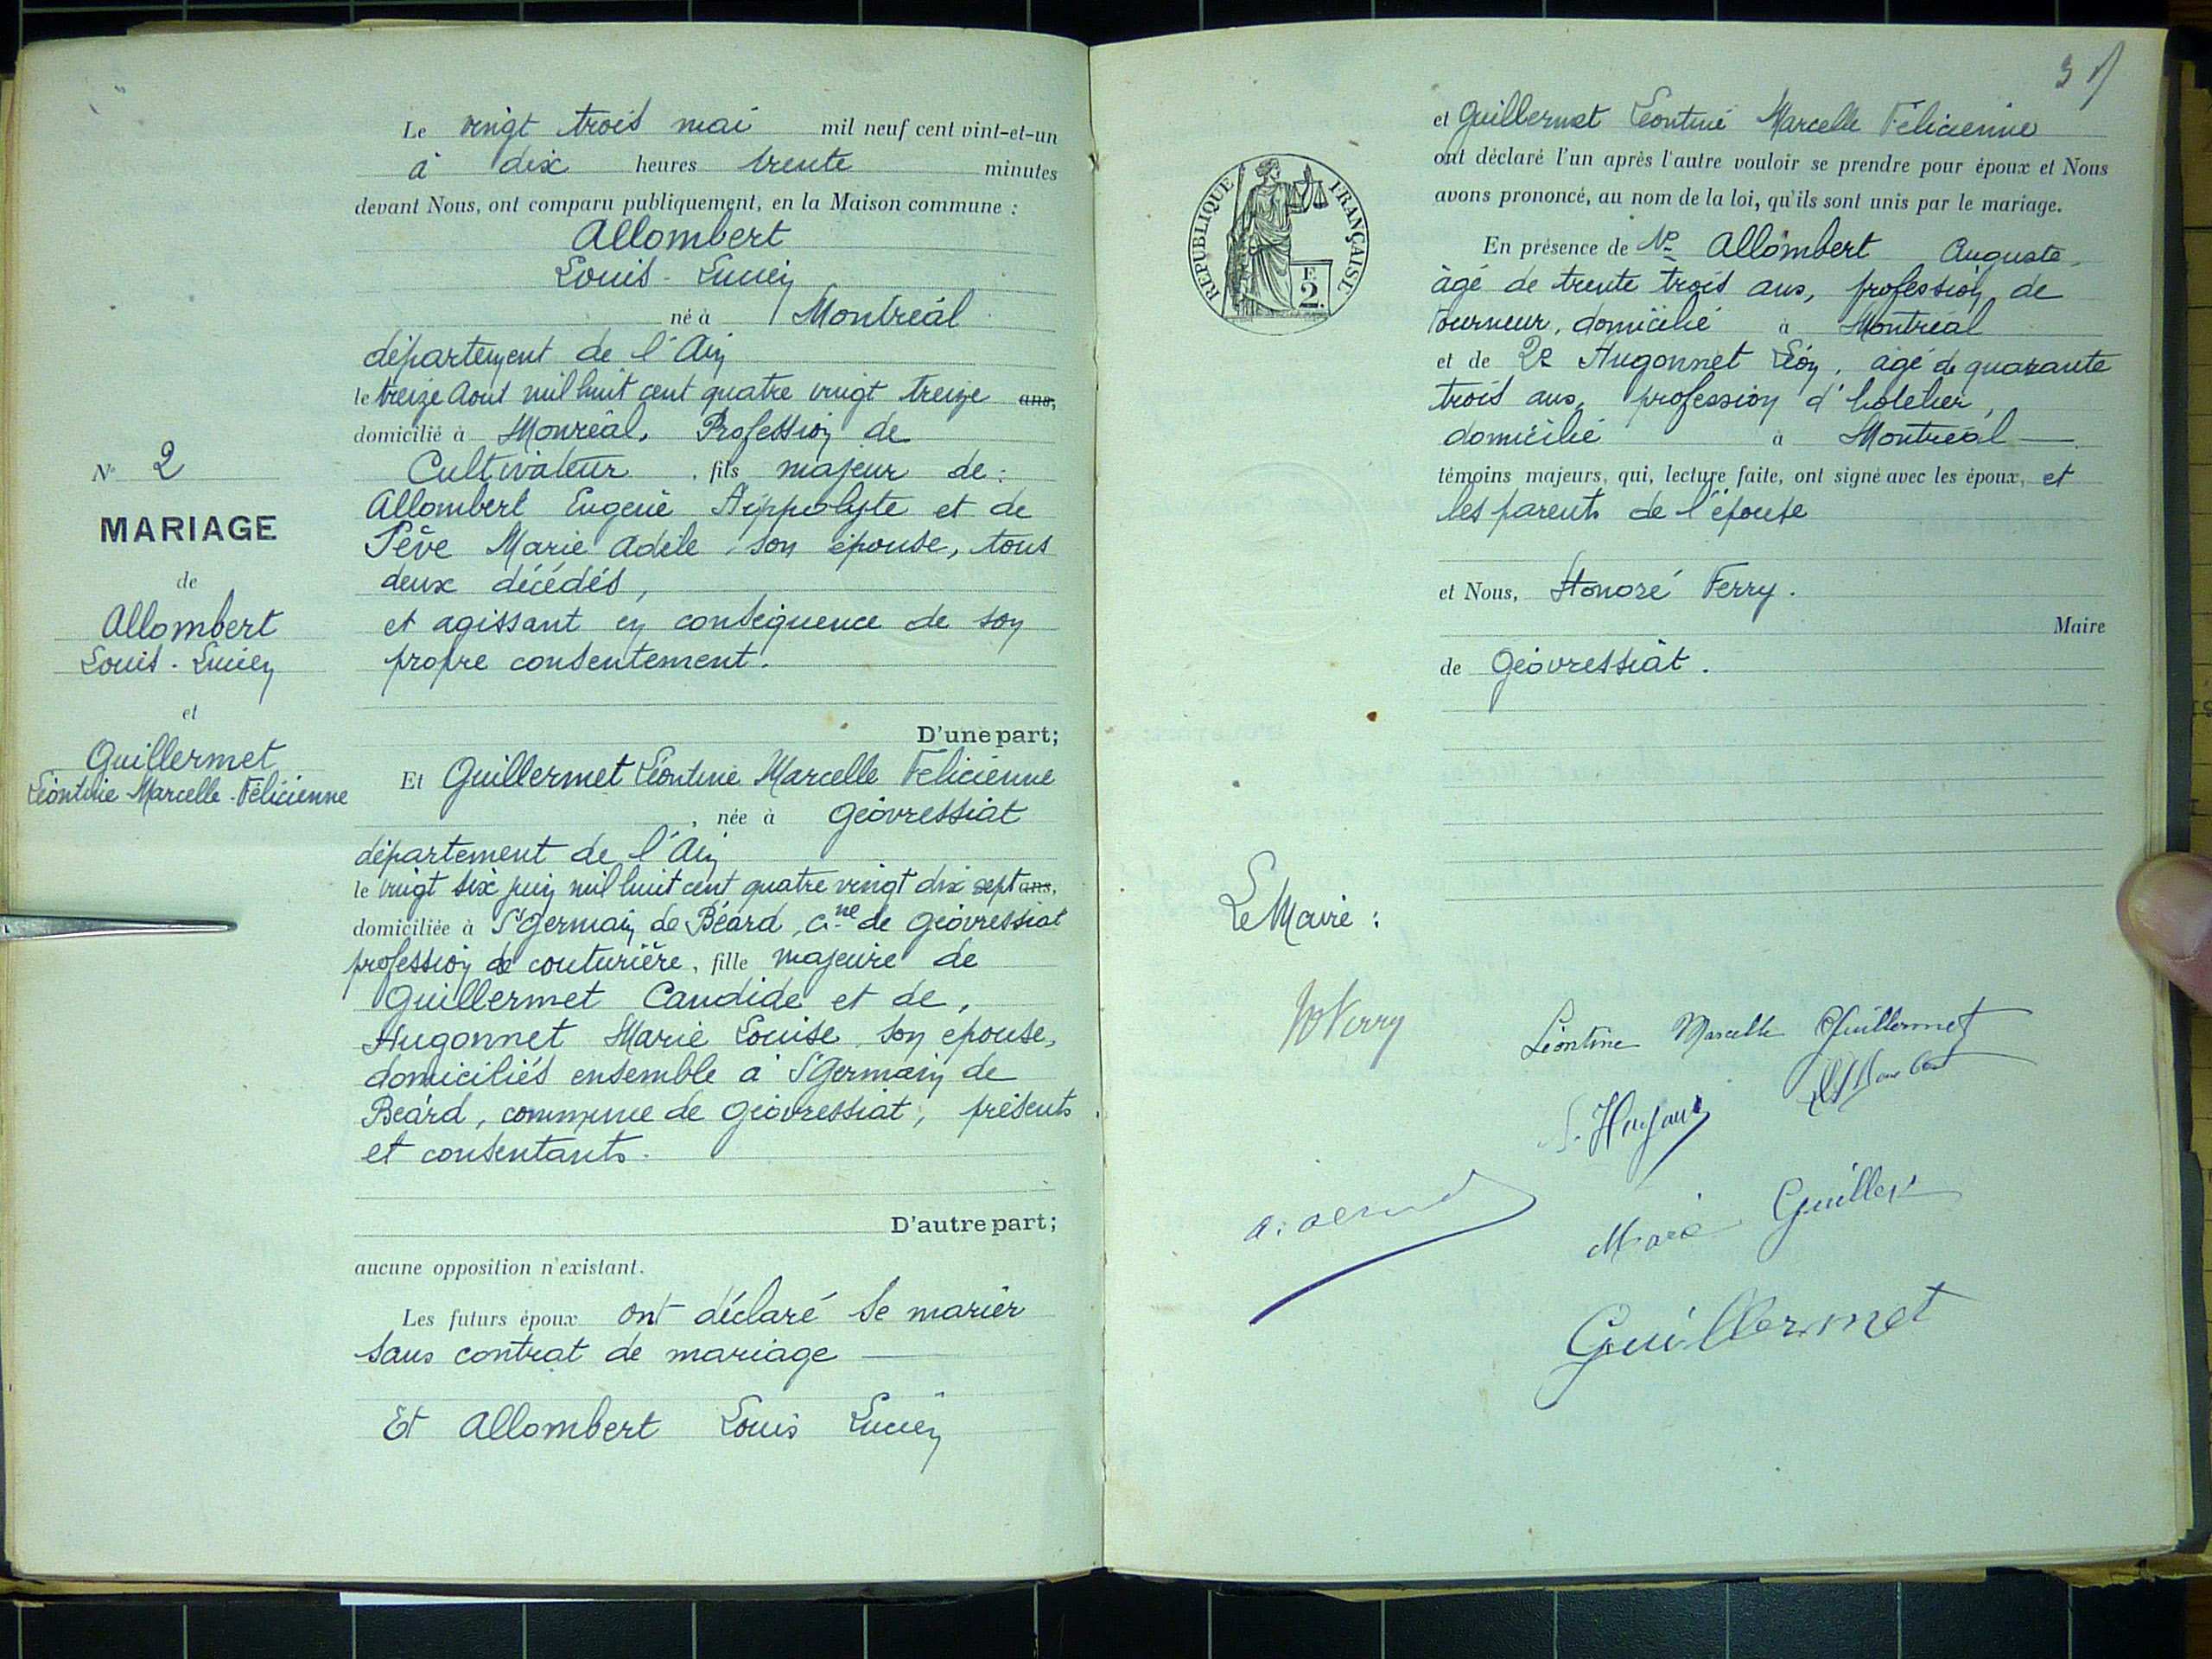 N° 2
MARIAGE
de
Allombert
Louis-Lucien
et
Guillermet
Léontine Marcelle-Félicienne
Le vingt trois mai mil neuf cent vint-et-un
à dix heures trente minutes
devant Nous, ont comparu publiquement, en la Maison commune :
Allombert
Louis-Lucien
né à Montréal
département de l'Ain
le treize Aout mil huit cent quatre vingt treize ans,
domicilié à Monréal, Profession de
Cultivateur, fils majeur de :
Allombert Eugene Hippolyte et de
Sève Marie Adèle, son épouse, tous
deux décédés,
et agissant en conséquence de son
propre consentement.
D'une part;
Et Guillermet Léontine Marcelle Félicienne
, née à Géovressiat
département de l'Ain
le vingt six juin mil huit cent quatre vingt dix sept ans,
domiciliée à St Germain de Béard, Cne de Géovressiat
profession de couturière, fille majeure de
Guillermet Candide et de,
Hugonnet Marie Louise son epouse,
domiciliés ensemble à St Germain de
Béard, commune de Géovressiat, présents
et consentants.
D'autre part;
aucune opposition n'existant.
Les futurs époux ont déclaré se marier
sans contrat de mariage
Et Allombert Louis Lucien
REPUBLIQUE FRANÇAISE
F.
2.
et Guillermet Léontine Marcelle Félicienne
ont déclaré l'un après l'autre vouloir se prendre pour époux et Nous
avons prononcé, au nom de la loi, qu'ils sont unis par le mariage.
En présence de Allombert Auguste
âgé de trente trois ans, profession de
tourneur, domicilié à Montréal
et de 2° Hugonnet Léon, agé de quarante
trois ans, profession d'hotelier,
domicilié à Montréal
témoins majeurs, qui, lecture faite, ont signé avec les époux, et
les parents de l'épouse
et Nous, Honoré Ferry.
Maire
de Géovressiat.
Le Maire :
Ferry
Léontine Marcelle Guillermet
Marie
Guillermet